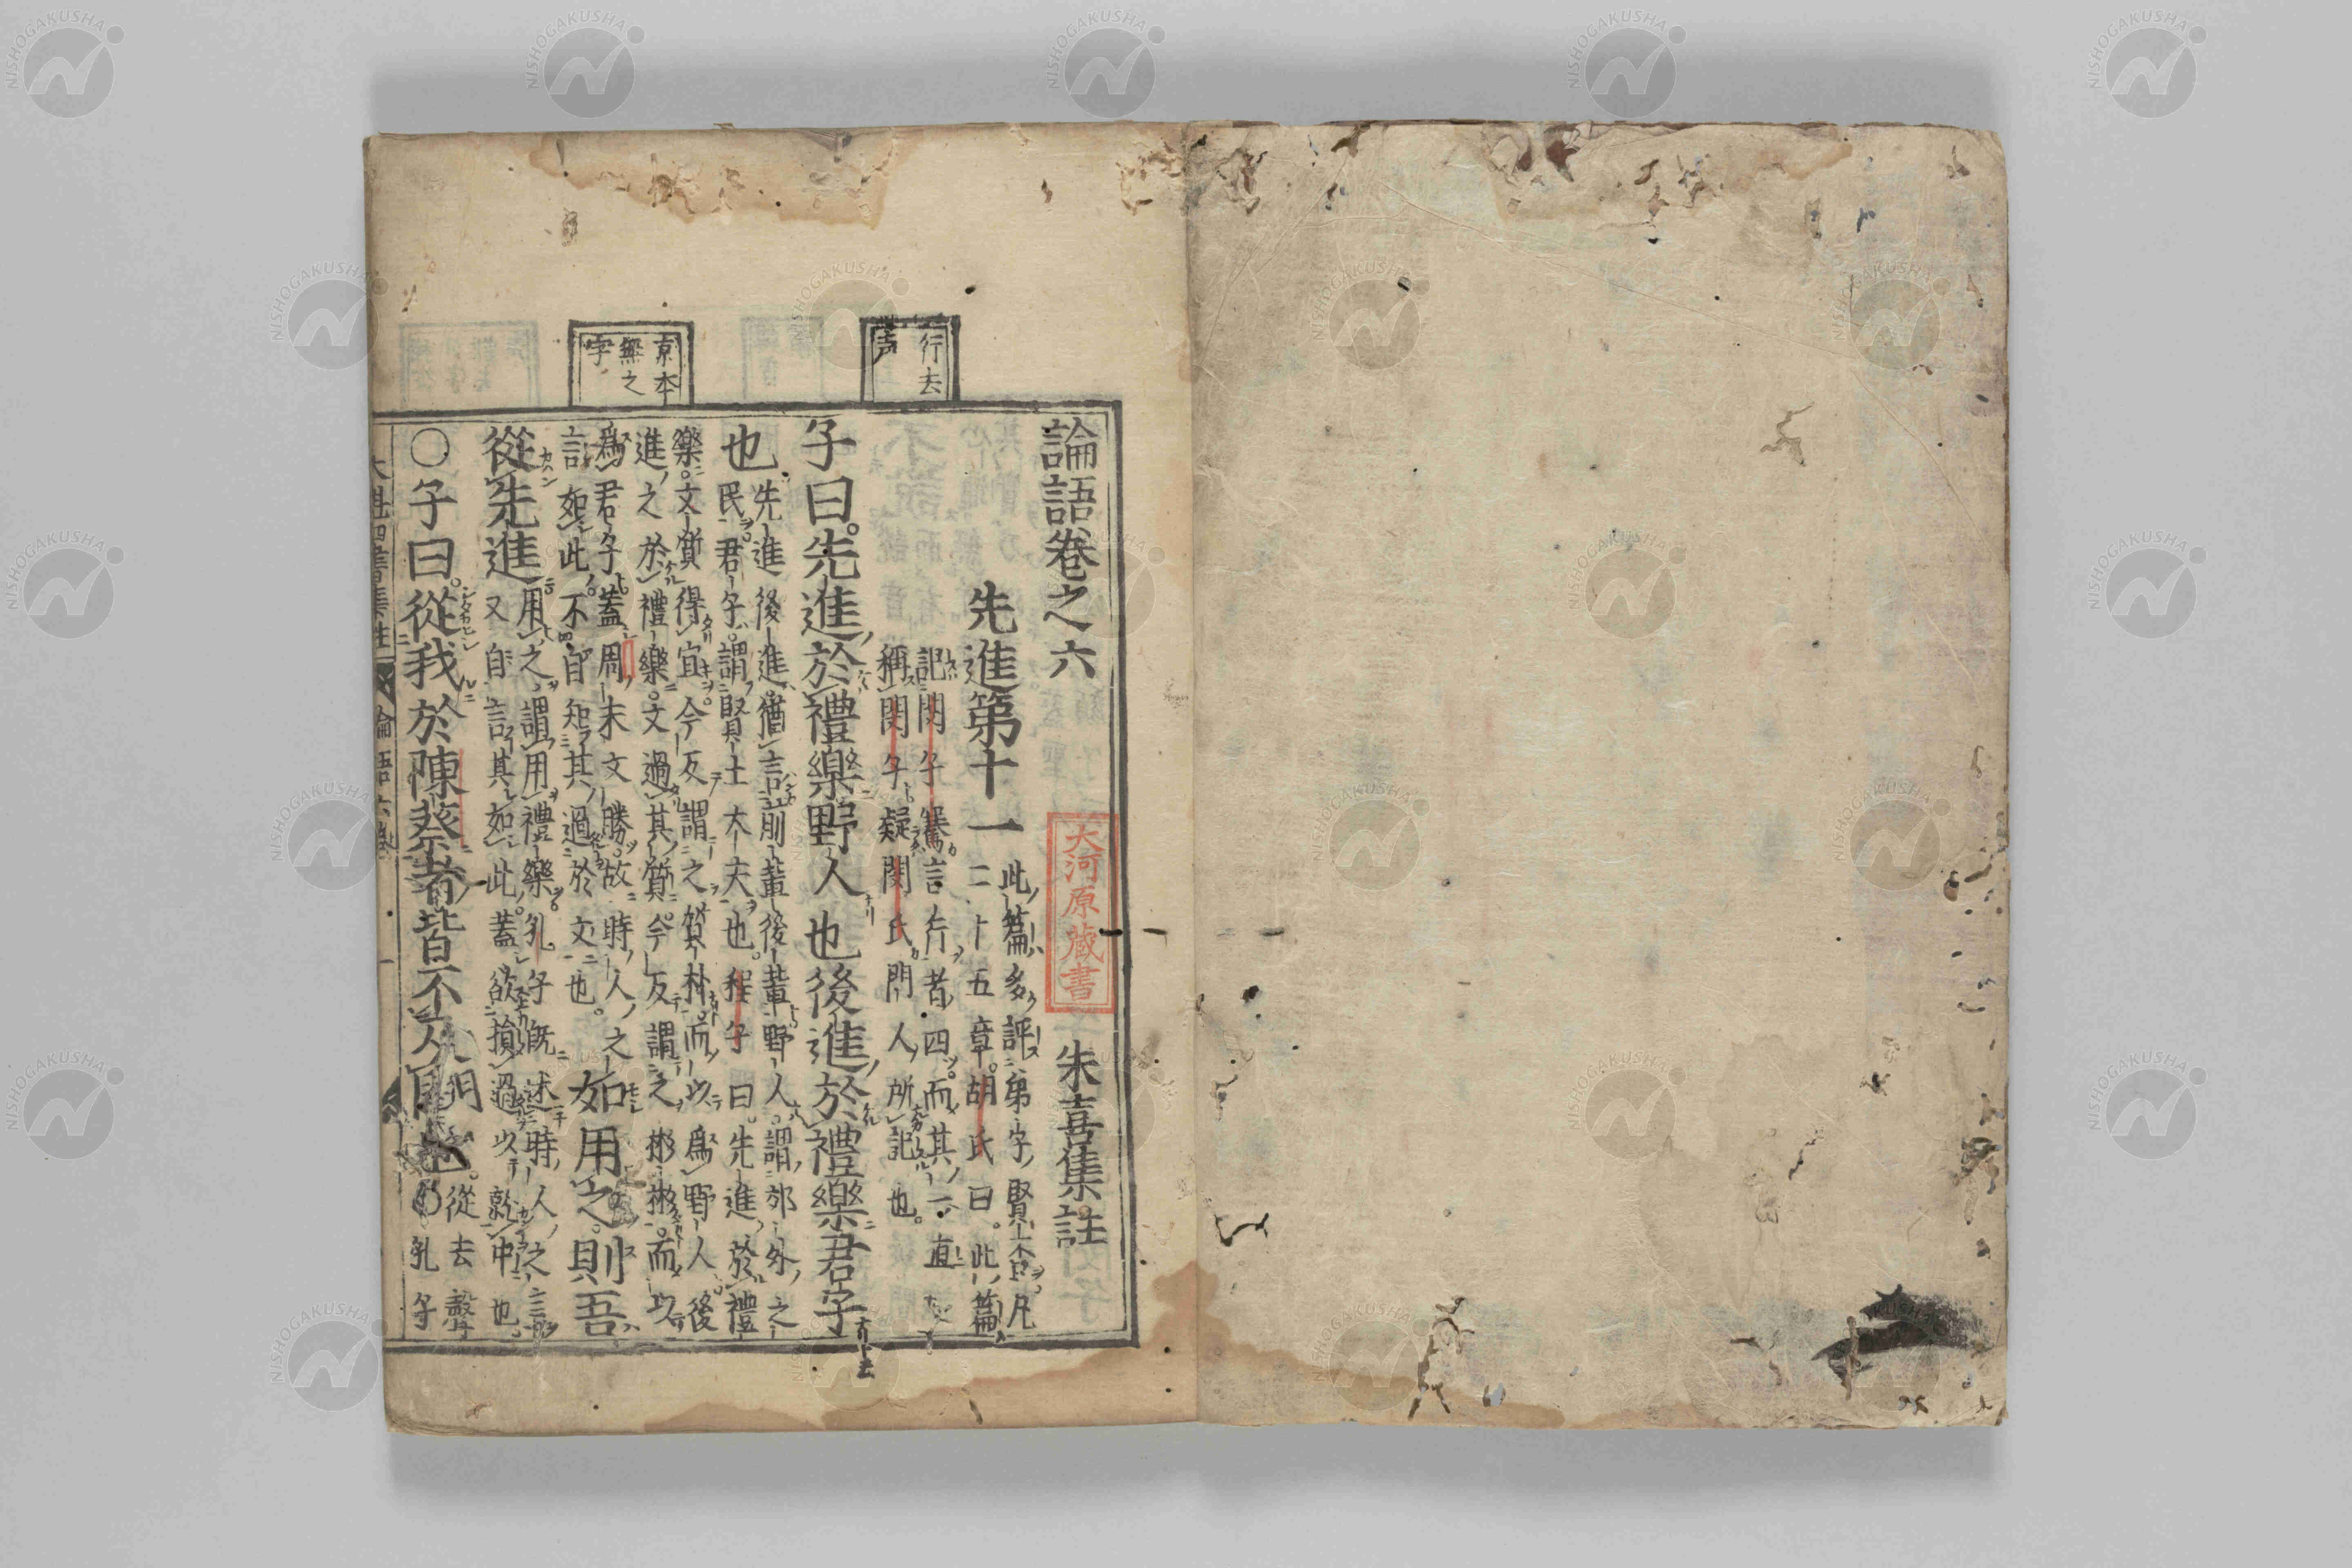 論語卷之六
朱熹集註
大河原藏書
先進第十一
此篇多評弟子賢否凡
二十五章胡氏曰此篇
記閔子騫言行者四而其一直
稱閔子疑閔氏門人所記也
行去
声
子曰先進於禮樂野人也後進於禮樂君子
也
先進後進猶言前輩後輩野人謂郊外之
民君子謂賢士大夫也程子曰先進於禮
樂文質得宜今反謂之質朴而以爲野人後
進之於禮樂文過其質今反謂之彬彬而以
爲君子蓋周末文勝故時人之
言如此不自知其過於文也
京本
無之
字
如用之則吾
從先進
用之謂用禮樂孔子旣述時人之言
又自言其如此蓋欲損過以就中也
○子曰從我於陳蔡者皆不及門也
從去聲
○孔子
論語六卷
NISHOGAKUSHA